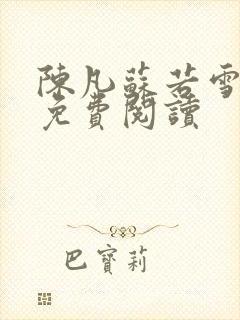 陳凡蘇若雪
免費閱讀
巴寶莉